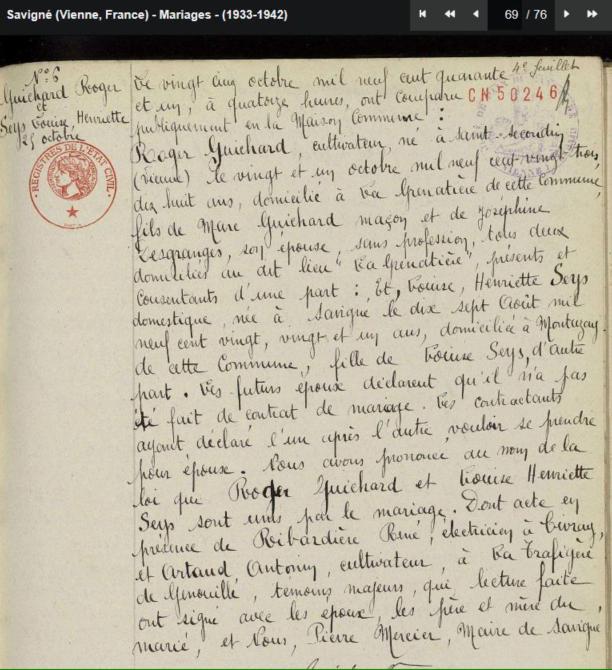 Savigné (Vienne, France) - Mariages - (1933-1942)
69 / 76
4e feuillet
N° 6
Guichard Roger
et
Seys Louise Henriette
25 octobre
REGISTRES DE L'ETAT CIVIL
CN 50246
Le vingt cinq octobre mil neuf cent quarante
et un, à quatorze heures, ont comparu
publiquement en la Maison Commune :
Roger Guichard, cultivateur, né à Saint-Secondin
(Vienne) le vingt et un octobre mil neuf cent vingt trois,
dix huit ans, domicilié à La Grenatière de cette commune,
fils de Marc Guichard maçon et de Joséphine
Lesgranges, son épouse, sans profession, tous deux
domiciliés au dit lieu "La Grenatière", présents et
consentants d'une part : Et, Louise, Henriette Seys
domestique, née à Savigné le dix sept Août mil
neuf cent vingt, vingt et un ans, domiciliée à
de cette Commune, fille de Louise Seys, d'autre
part. Les futurs époux déclarent qu'il n'a pas
été fait de contrat de mariage. Les contractants
ayant déclaré l'un après l'autre vouloir se prendre
pour épouse. Nous avons prononcé au nom de la
loi que Roger Guichard et Louise Henriette
Seys sont unis par le mariage. Dont acte en
présence de Ribardière René, électricien à Civray,
et Artaud Antonin, cultivateur, à La
de Genouillé, témoins majeurs, qui, lecture faite
ont signé avec les époux, les père et mère du
marié, et Nous, Pierre Mercier, Maire de Savigné